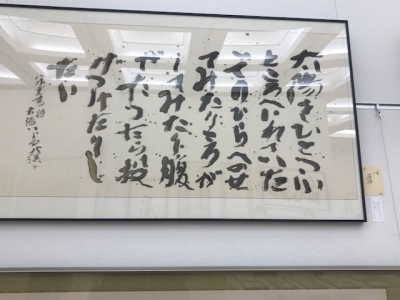 太陽をひとつふ
ところへいれていた
いてのひらへのせ
てみたりころが
してみたり腹
がたったら投
げつけたりし
たい
八木重吉詩
太陽